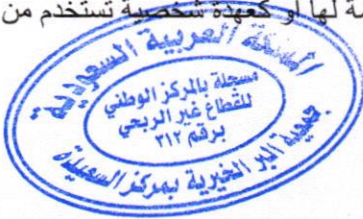 مة لها أو كعهدة شخصية تستخدم من
المملكة العربية السعودية
مسجلة بالمركز الوطني
للقطاع غير الربحي
برقم ٣١٢
جمعية البر الخيرية بمركز السعيدة